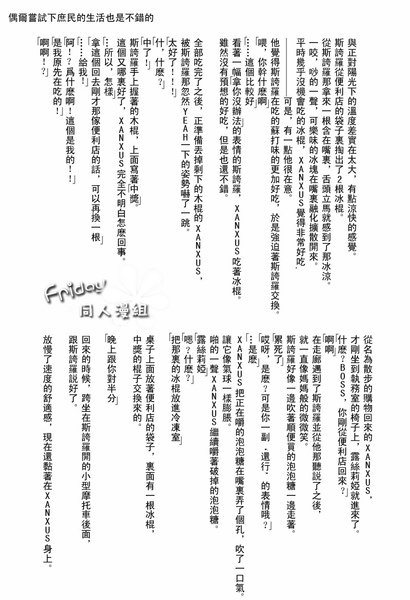 偶爾嘗試下庶民的生活也是不錯的
與正對陽光下的溫度差實在太大,有點涼快的感覺。
斯誇羅從便利店的袋子裏掏出了2根冰棍。
從斯誇羅那拿來一根含在嘴裏,舌頭立馬就感到了那冰涼。
一咬,吵的一聲,可樂味的冰塊在嘴裏融化擴散開來。
平時幾乎沒機會吃的冰棍,XANXUS覺得非常好吃。
————可是,有一點他很在意。
他覺得斯誇羅在吃的蘇打味的更加好吃,於是強迫著斯誇羅交換。
「喂,你幹什麼啊」
「…這個比較好」
看著一幅拿你沒辦法的表情的斯誇羅,XANXUS吃著冰棍。
雖然沒有預想的好吃,但是也還不錯。
全部吃完了之後,正準備丟掉剩下的木棍的XANXUS,
被斯誇羅那忽然YEAH一下的姿勢嚇了一跳。
「太好了!!!」
「什、什麼?」
「中了!」
斯誇羅手上握著的木棍,上面寫著“中獎。
這個又哪裏好了,XANXUS完全不明白怎麼回事。
「所以,怎樣」
「拿這個回去剛才那傢便利店的話,可以再換一根」
「…給我!」
「阿!?爲什麼啊!這個是我的!!」
「是我原先在吃的!」
「啊啊!?」
Friday
同人漫組
從名為散步的購物回來的XANXUS,
才剛坐到執務室的椅子上,露絲莉婭就進來了。
「什麼?BOSS,你剛從便利店回來?」
「啊啊」
在走廊遇到了斯誇羅並從他那聽說了之後,
就一直像媽媽般的微微笑。
斯誇羅好像一邊吹著順便買的泡泡糖一邊走著。
「累死了」
「哎呀,是麼?可是你一副“還行”的表情哦?」
「…是麼」
XANXUS把正在嚼的泡泡糖在嘴裏弄了個孔,吹了一口氣。
讓它像氣球一樣膨脹。
啪的一聲XANXUS繼續嚼著破掉的泡泡糖。
「露絲莉婭」
「嗯?什麼?」
「把那裏的冰棍放進冷凍室」
桌子上面放著便利店的袋子,裏面有一根冰棍,
中獎的棍子交換來的。
「晚上跟你對半分」
回來的時候,跨坐在斯誇羅開的小型摩托車後面,
跟斯誇羅說好了。
放慢了速度的舒適感,現在還黏著在XANXUS身上。